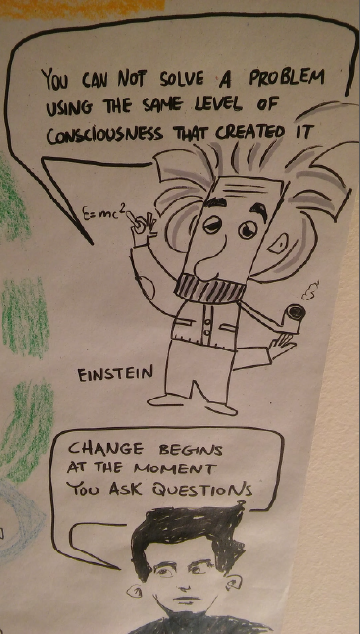 YOU CAN NOT SOLVE A PROBLEM
USING THE SAME LEVEL OF
CONSCIOUSNESS THAT CREATED IT
E=mc²
EINSTEIN
CHANGE BEGINS
AT THE MOMENT
YOU ASK QUESTIONS